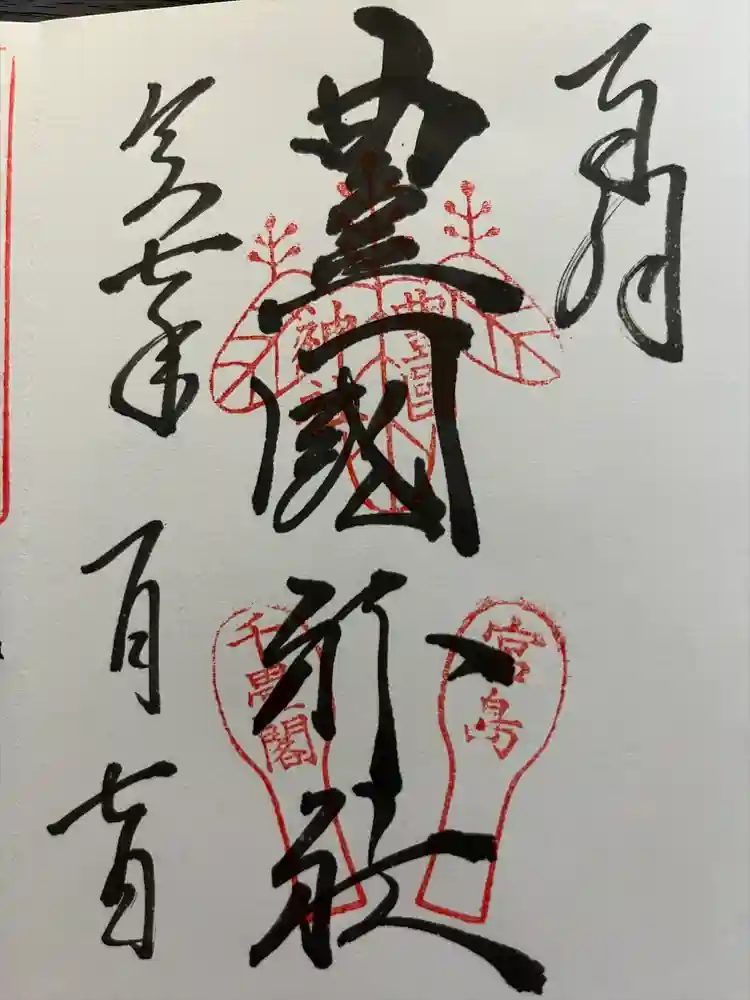 奉拝
豊國神社
令和七年一月七日
宮島
千畳閣